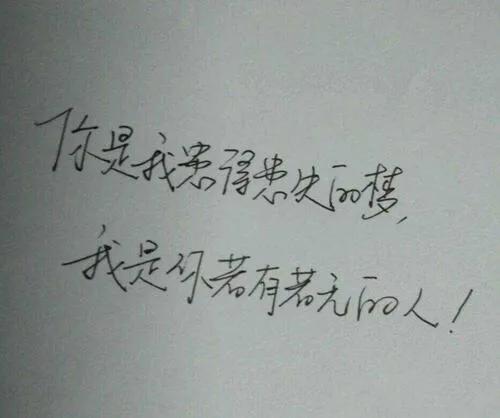 你是我患得患失的梦,
我是你若有若无的人!